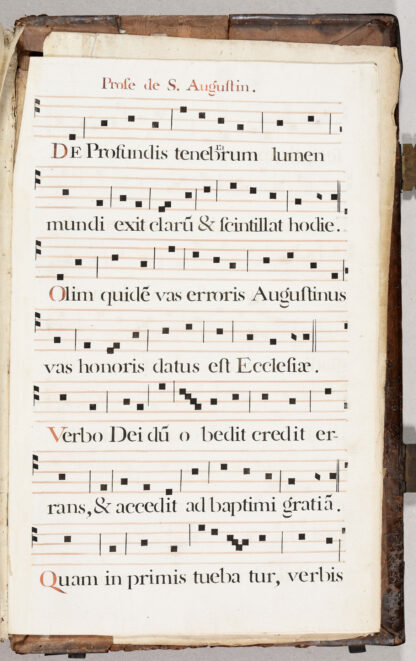 Proſe de S. Auguſtin.
DE Profundis tenebrum lumen
mundi exit clarū & ſcintillat hodie.
Olim quidē vas erroris Auguſtinus
vas honoris datus eſt Eccleſiæ.
Verbo Dei dū o bedit credit er-
rans, & accedit ad baptimi gratiā.
Quam in primis tueba tur, verbis